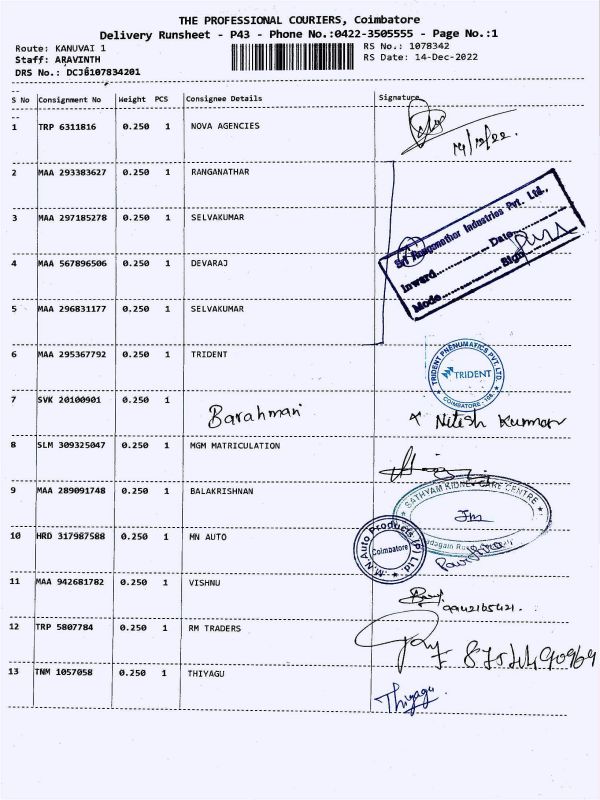 THE PROFESSIONAL COURIERS, Coimbatore
Delivery Runsheet - P43 - Phone No.:0422-3505555 - Page No.:1
Route: KANUVAI 1
RS No.: 1078342
Staff: ARAVINTH
RS Date: 14-Dec-2022
DRS No.: DCJB107834201
S No Consignment No Weight PCS Consignee Details Signature
1 TRP 6311816 0.250 1 NOVA AGENCIES
14/12/22.
2 MAA 293383627 0.250 1 RANGANATHAR
3 MAA 297185278 0.250 1 SELVAKUMAR
Sri Ranganathar Industries Pvt. Ltd.,
Inward............Date............
Mode............Sign............
4 MAA 567896506 0.250 1 DEVARAJ
5 MAA 296831177 0.250 1 SELVAKUMAR
6 MAA 295367792 0.250 1 TRIDENT
TRIDENT PNEUMATICS PVT. LTD.
TRIDENT
COIMBATORE
7 SVK 20100901 0.250 1
Barahmani
Nitesh Kumar
8 SLM 309325047 0.250 1 MGM MATRICULATION
9 MAA 289091748 0.250 1 BALAKRISHNAN
SATHYAM KIDNEY CARE CENTRE
10 HRD 317987588 0.250 1 MN AUTO
M.N. Auto Products (P) Ltd.
Coimbatore
11 MAA 942681782 0.250 1 VISHNU
9942165421.
12 TRP 5807784 0.250 1 RM TRADERS
13 TNM 1057058 0.250 1 THIYAGU
Thiyagu.